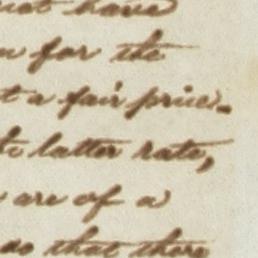 not have
for the
t a fair price.
latter rate,
are of a
so that there